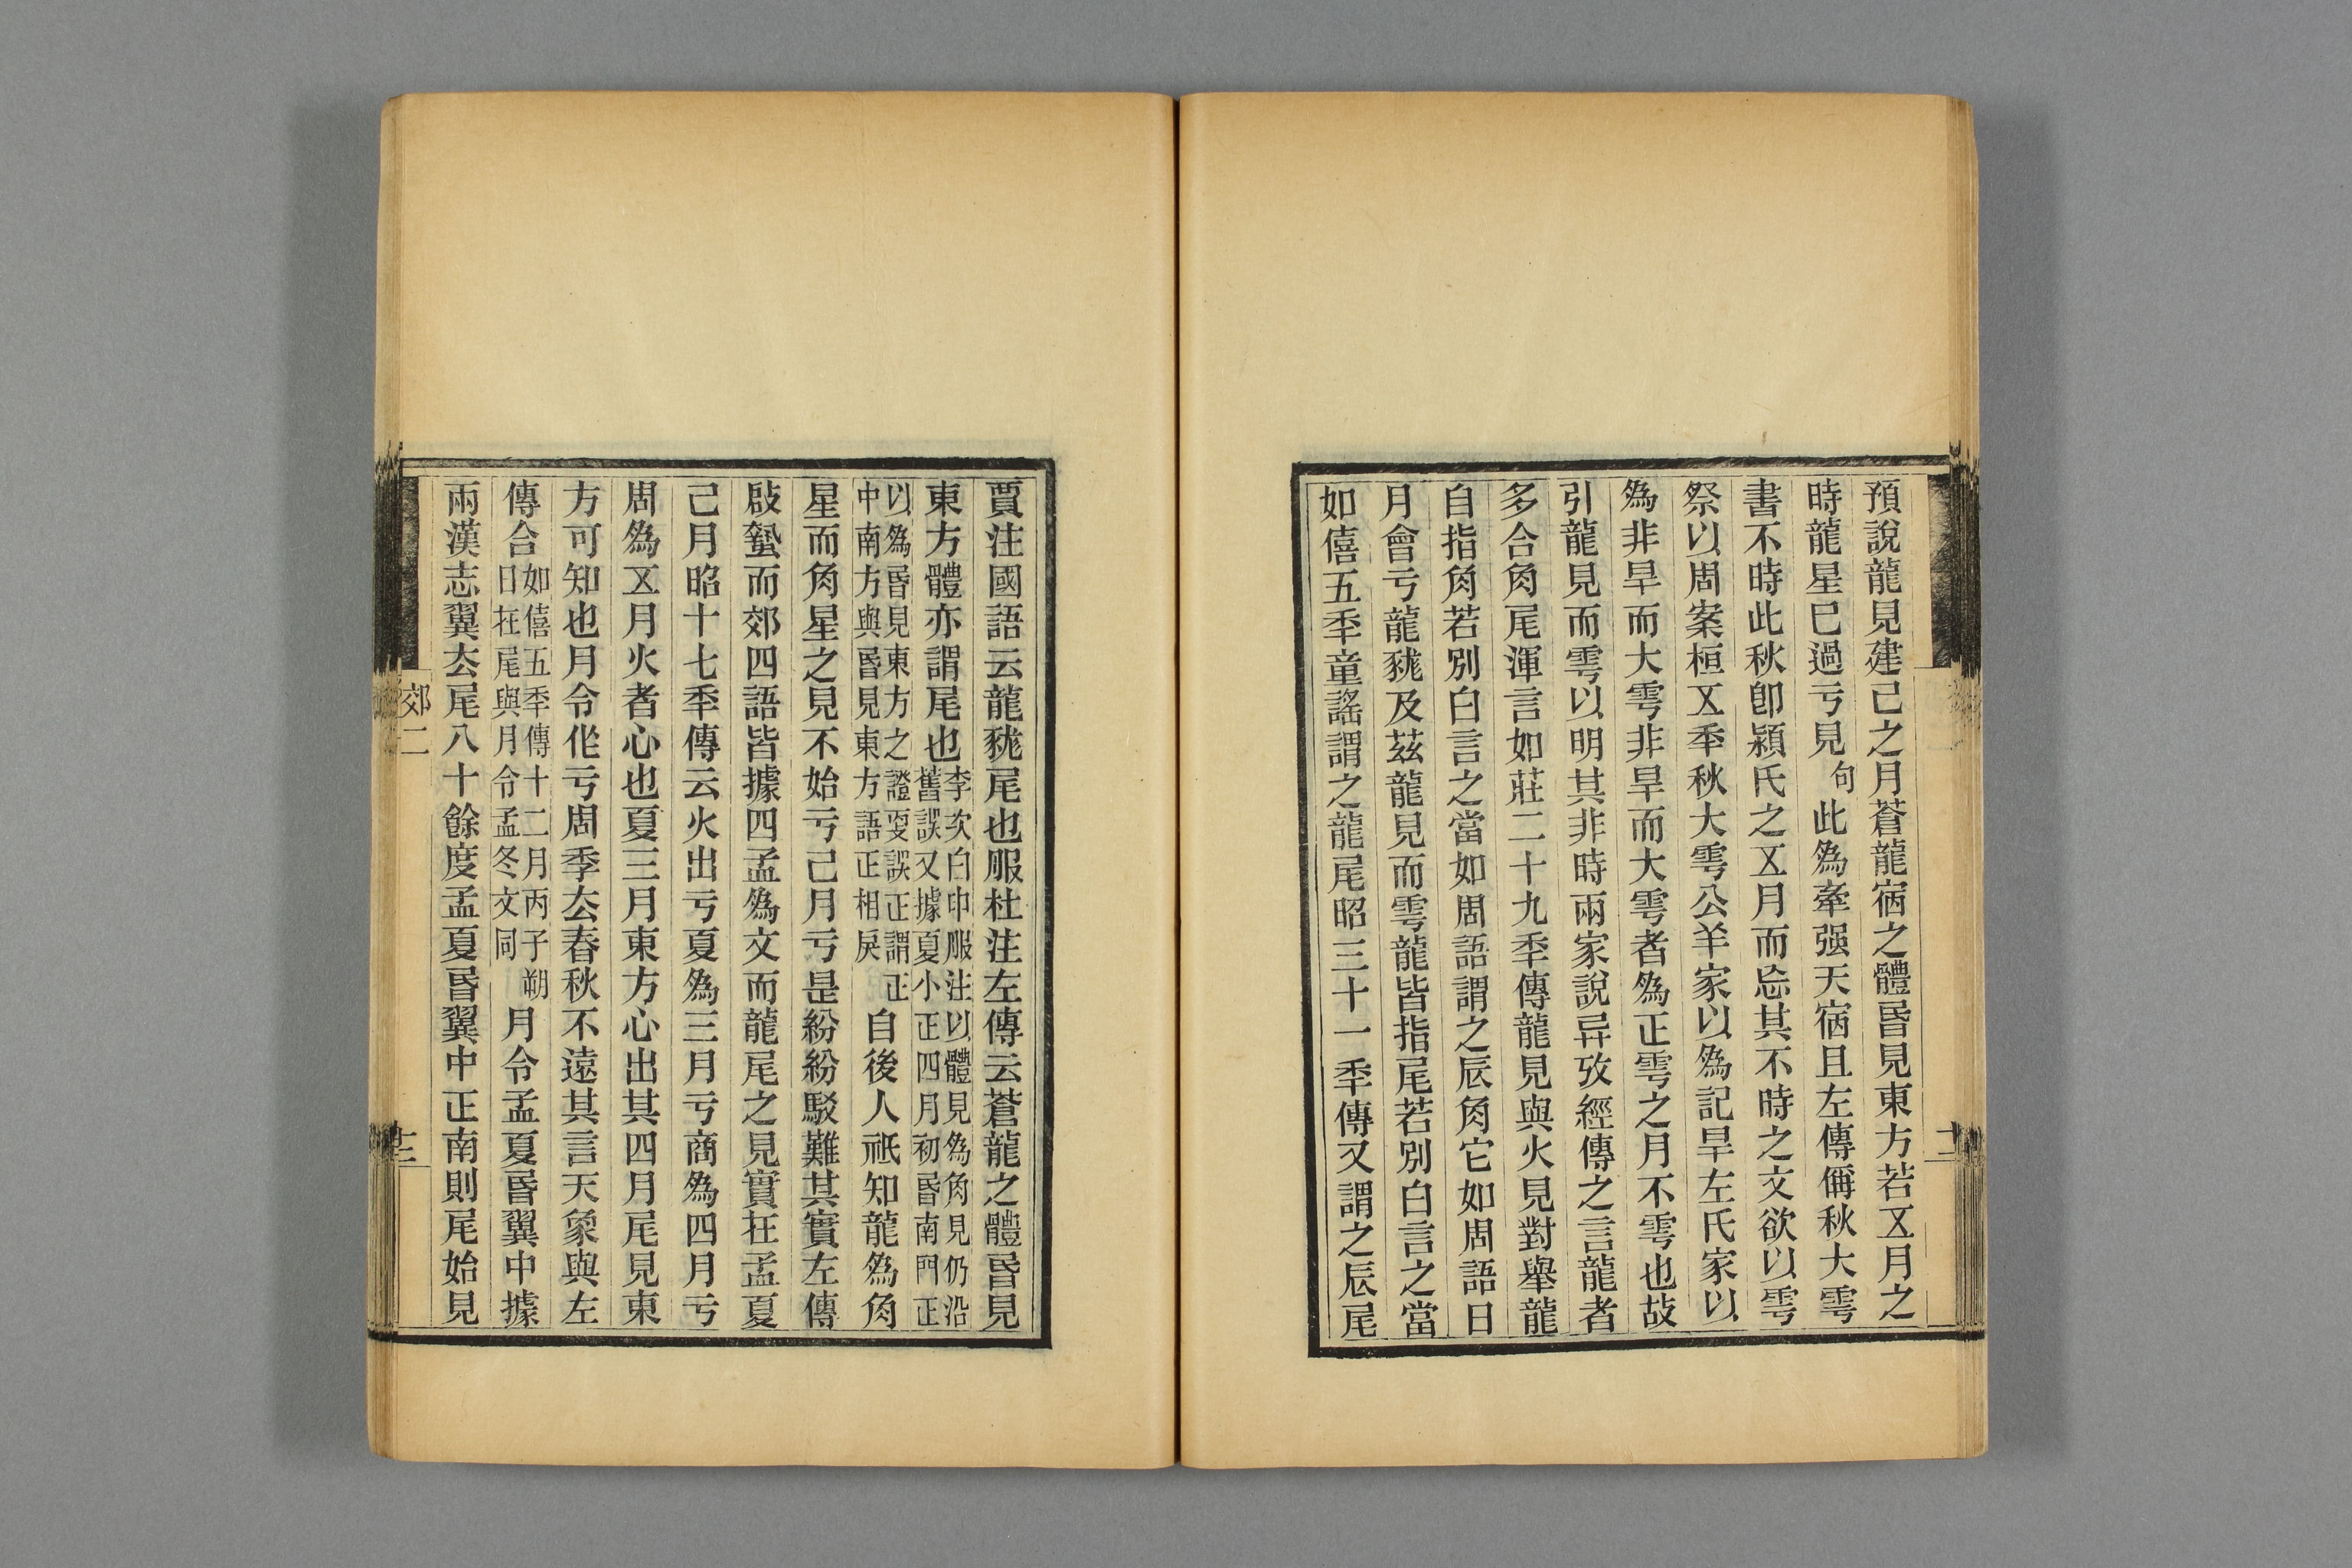 預說龍見建巳之月蒼龍宿之體昏見東方若㐅月之
時龍星巳過亏見句此爲牽强天宿且左傳偁秋大雩
書不時此秋卽穎氏之㐅月而忘其不時之文欲以雩
祭以周案桓㐅秊秋大雩公羊家以爲記旱左氏家以
爲非旱而大雩非旱而大雩者爲正雩之月不雩也故
引龍見而雩以明其非時兩家說异攷經傳之言龍者
多合角尾渾言如莊二十九秊傳龍見與火見對舉龍
自指角若別白言之當如周語謂之辰角它如周語日
月會亏龍𧱓及茲龍見而雩龍皆指尾若別白言之當
如僖五秊童謠謂之龍尾昭三十一秊傳又謂之辰尾
十二
賈注國語云龍𧱓尾也服杜注左傳云蒼龍之體昏見
東方體亦謂尾也李次白申服注以體見爲角見仍沿
舊誤又據夏小正四月初昏南門正
以爲昏見東方之證㪅誤正謂正
中南方與昏見東方語正相戾自後人祇知龍爲角
星而角星之見不始亏巳月亏是紛紛駁難其實左傳
啟蟄而郊四語皆據四孟爲文而龍尾之見實在孟夏
巳月昭十七秊傳云火出亏夏爲三月亏商爲四月亏
周爲㐅月火者心也夏三月東方心出其四月尾見東
方可知也月令作亏周季去春秋不遠其言天象與左
傳合如僖五秊傳十二月丙子朔
日在尾與月令孟冬文同月令孟夏昏翼中據
兩漢志翼去尾八十餘度孟夏昏翼中正南則尾始見
郊二
十二